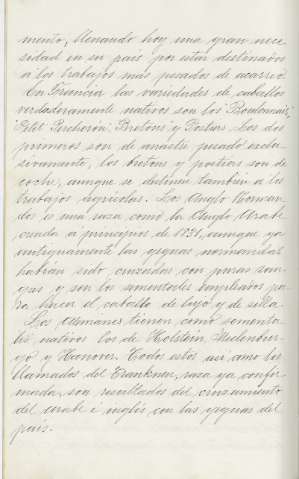 mento, llenando hoy una gran nece-
sidad en su país por estar destinados
a los trabajos más pesados de acarreo.
En Francia las variedades de caballos
verdaderamente nativos son los Boulonnais,
Petit Percherón, Bretons y Postier. Los dos
primeros son de arrastre pesado exclu-
sivamente, los bretons y postiers son de
coche, aunque se destinan también a los
trabajos agrícolas. Los Anglo Norman-
dos es una raza como la Anglo Arabe
creada a principios de aunque ya
antiguamente las yeguas normandas
habían sido cruzadas con puras san-
gas y son los sementales empleados pa-
ra hacer el caballo de lujo y de silla.
Los Alemanes tienen como sementa-
les nativos los de Holstein,
go y Hanover. Todos estos asi como los
llamados del raza ya confir-
mada, son resultados del cruzamiento
del arabe é inglés con las yeguas del
país.